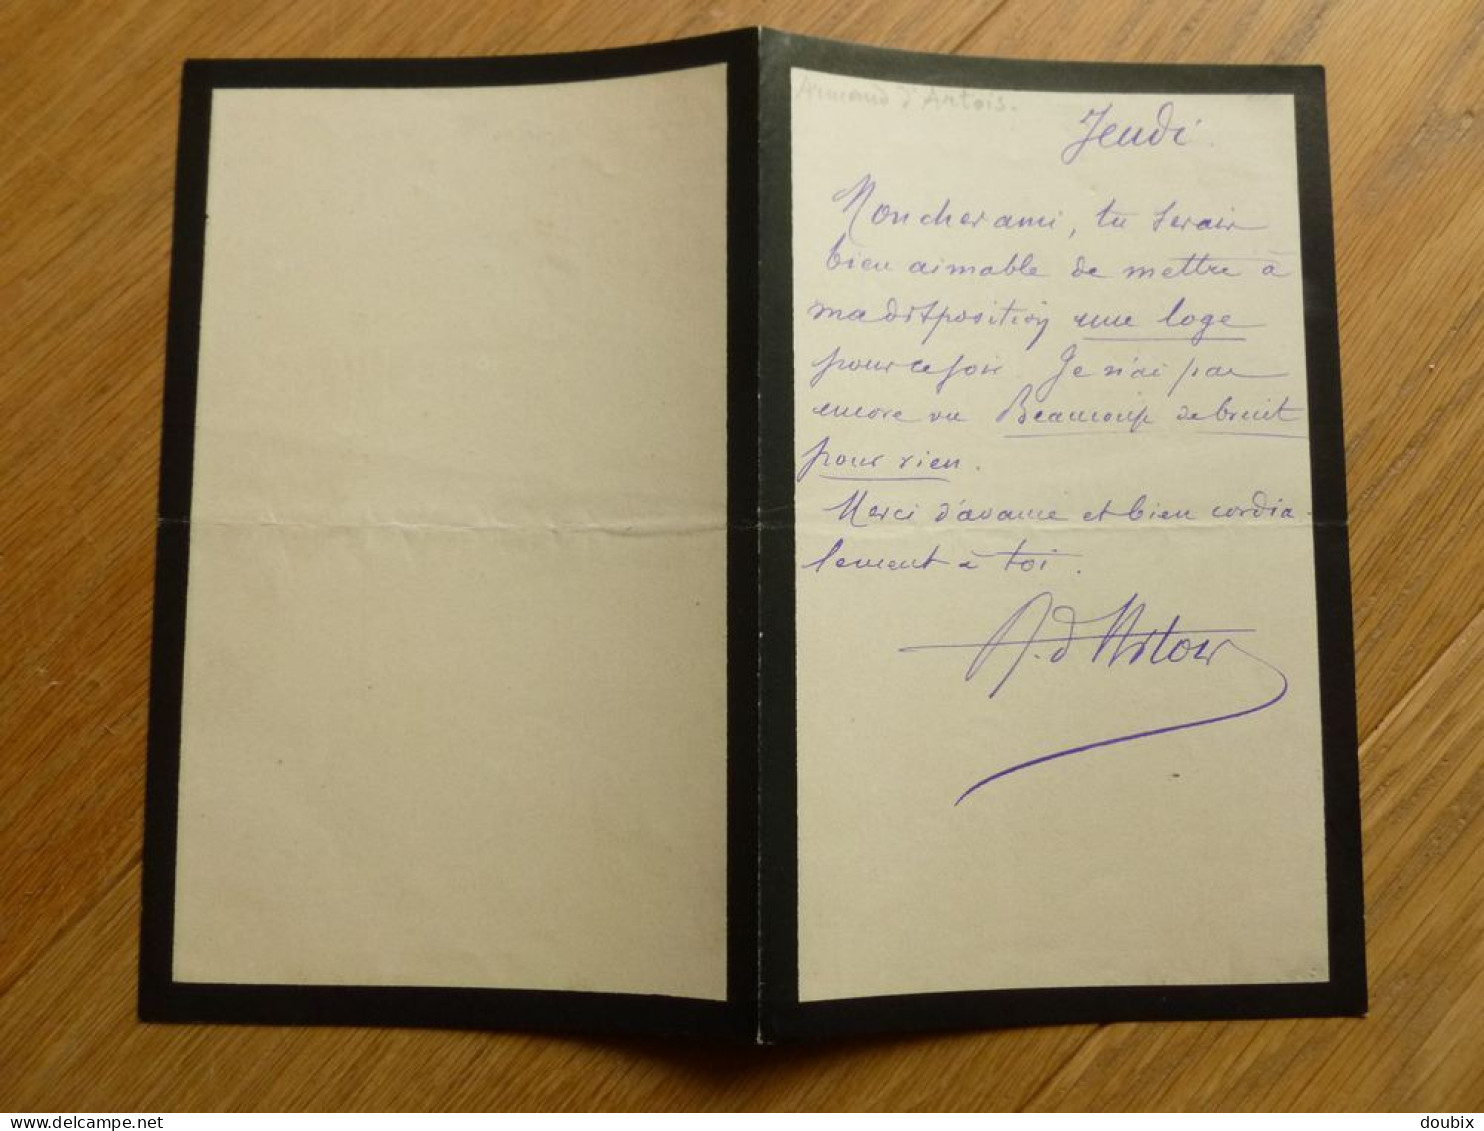 Armand d'Artois.
Jeudi.
Mon cher ami, tu serais
bien aimable de mettre à
ma disposition une loge
pour ce soir. Je n'ai pas
encore vu Beaucoup de bruit
pour rien.
Merci d'avance et bien cordia-
lement à toi.
A. d'Artois
doubix
delcampe.net